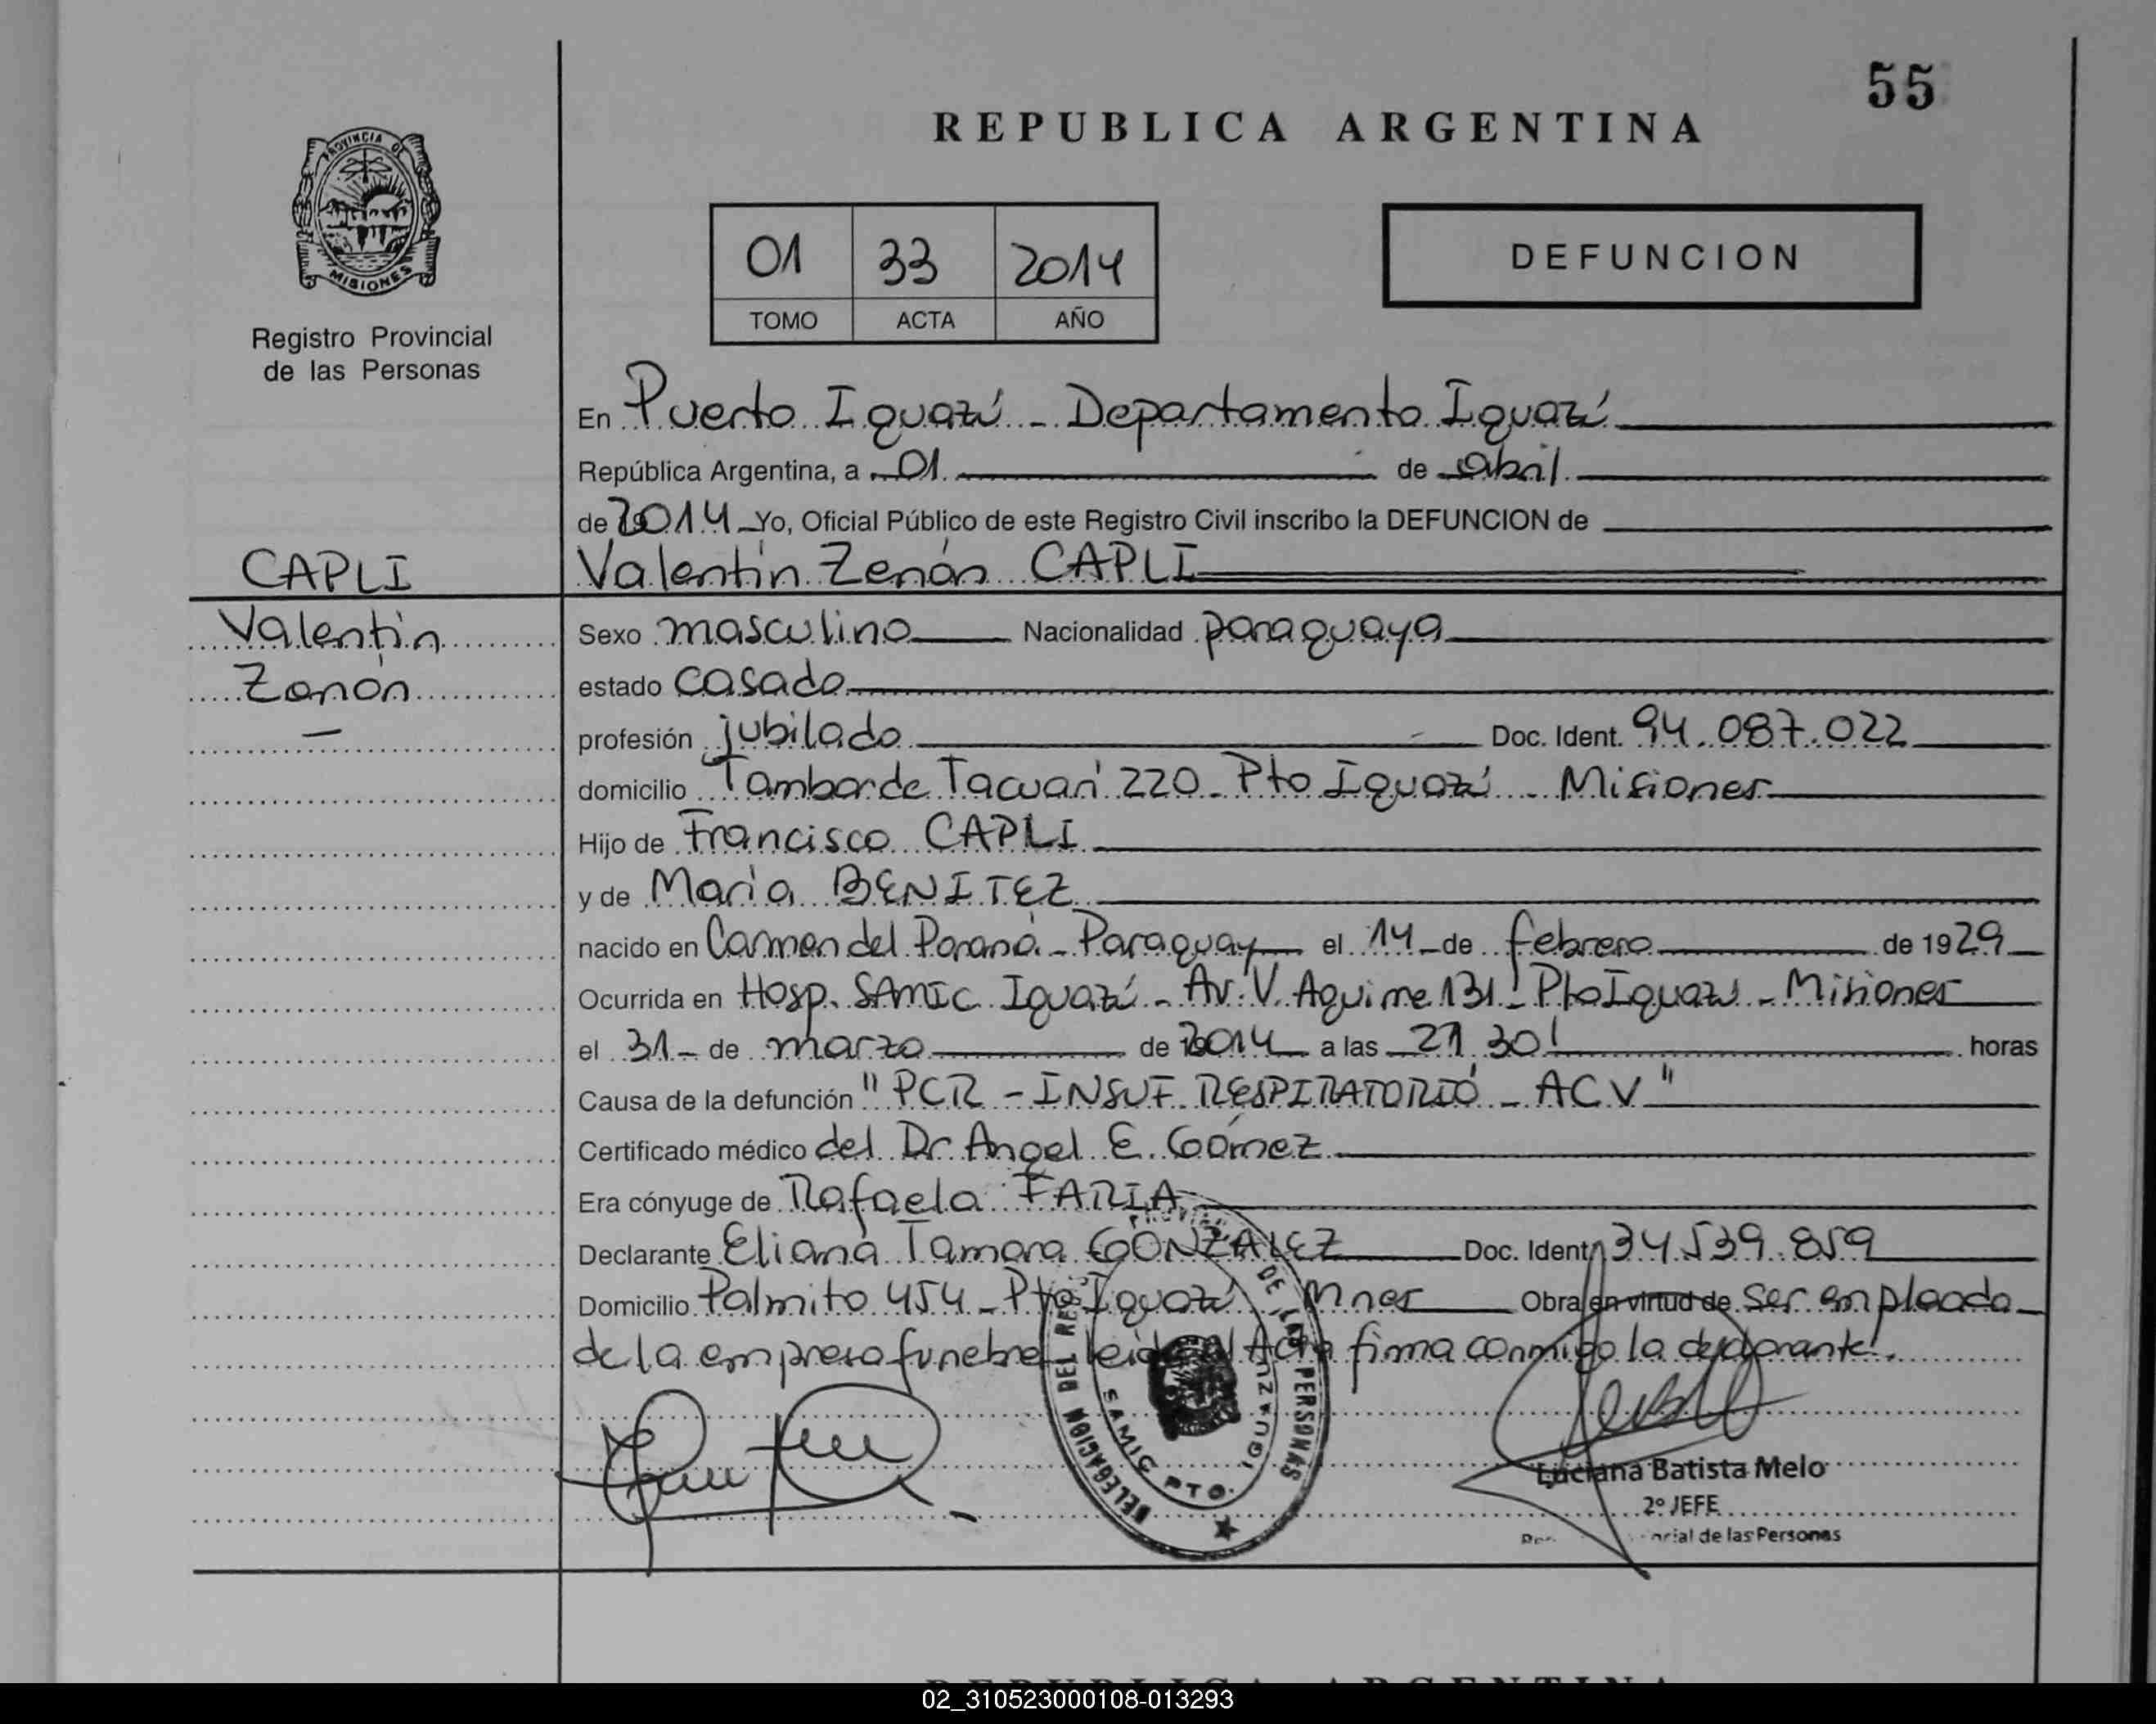 55
REPUBLICA ARGENTINA
PROVINCIA DE
MISIONES
Registro Provincial
de las Personas
01 33 2014
TOMO ACTA AÑO
DEFUNCION
En Puerto Iguazú - Departamento Iguazú
República Argentina, a 01 de abril
de 2014 Yo, Oficial Público de este Registro Civil inscribo la DEFUNCION de
CAPLI
Valentín Zenón CAPLI
Valentín
Zenón
Sexo masculino Nacionalidad paraguaya
estado casado
profesión jubilado Doc. Ident. 94.087.022
domicilio Tambor de Tacuarí 220 - Pto Iguazú - Misiones
Hijo de Francisco CAPLI
y de María BENITEZ
nacido en Carmen del Paraná - Paraguay el 14 de febrero de 1929
Ocurrida en Hosp. SAMIC Iguazú - Av. V. Aguirre 131 - Pto Iguazú - Misiones
el 31 de marzo de 2014 a las 21 30' horas
Causa de la defunción "PCR - INSUF RESPIRATORIO - ACV"
Certificado médico del Dr Angel E. Gómez
Era cónyuge de Rafaela FARIA
Declarante Eliana Tamara GONZALEZ Doc. Ident. 34.539.859
Domicilio Palmito 454 - Pto Iguazú Mnes Obra en virtud de ser empleada
de la empresa funebre leida el Acta firma conmigo la declarante.
DELEGACION DEL DE LAS PERSONAS
SAMIC PTO. IGUAZU
Luciana Batista Melo
2º JEFE
de las Personas
REPUBLICA ARGENTINA
02_310523000108-013293